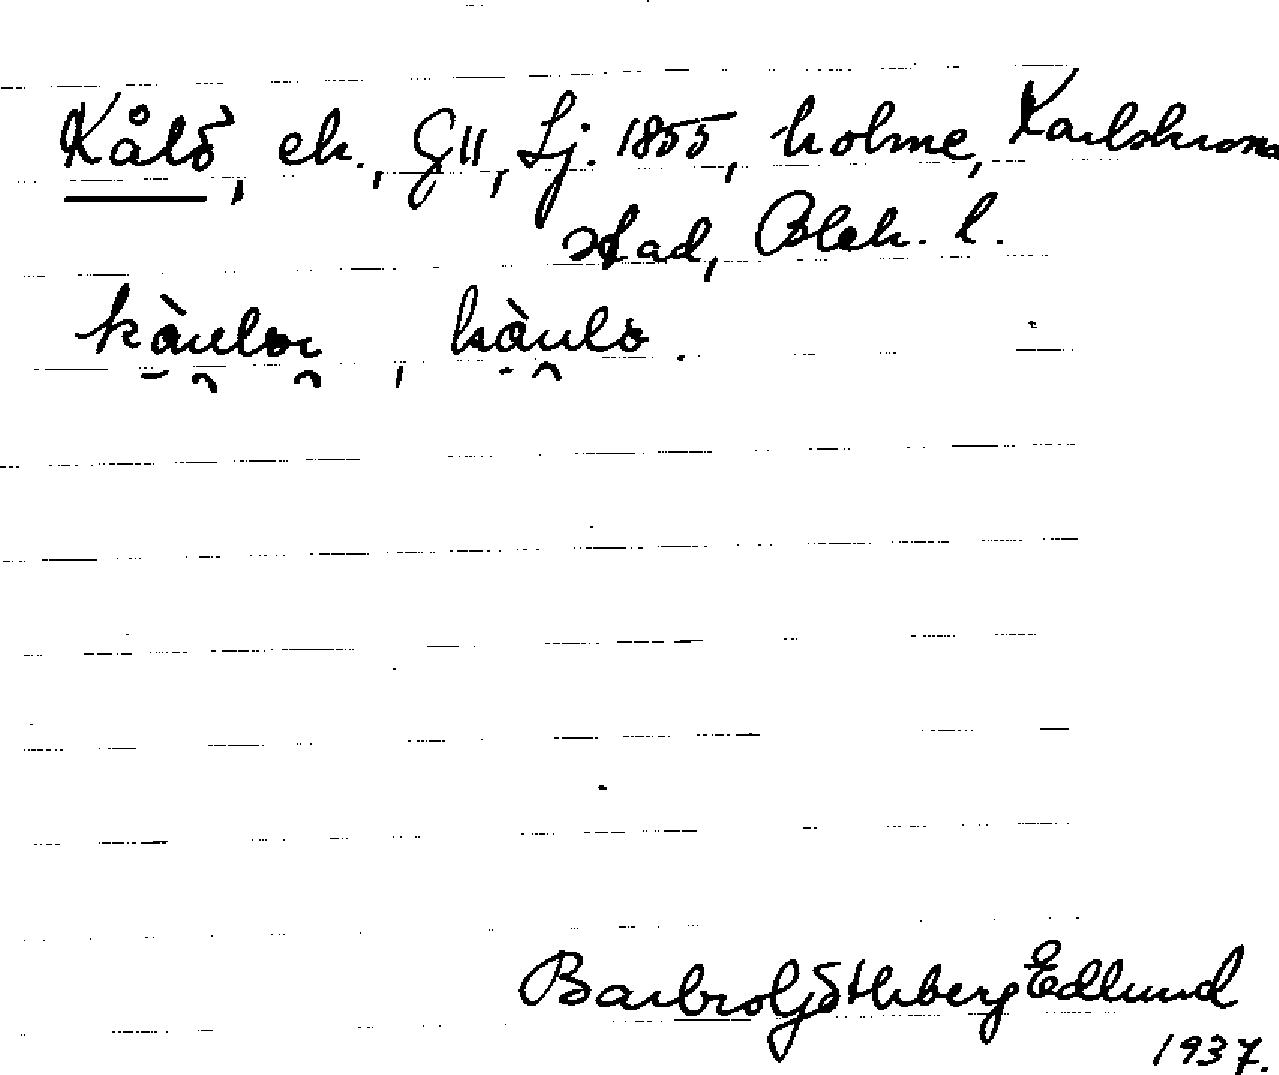 Kålö, ek., GII, Lj. 1855, holme, Karlskrona
stad, Blek. l.
kàulör, kàulö.
Barbro Göthberg Edlund
1937.